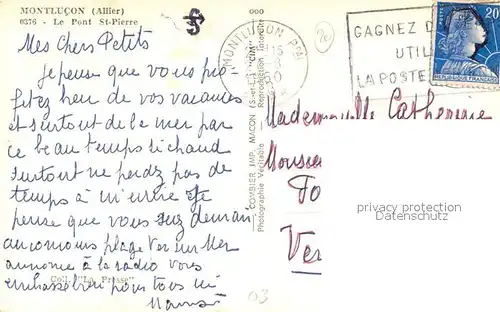 MONTLUÇON (Allier)
0376 - Le Pont St-Pierre
Mes Chers Petits
Je pense que vous pro-
fitez bien de vos vacances
et surtout de la mer par
ce beau temps si chaud
surtout ne perdez pas de
temps à m'écrire Je
pense que vous demain
au concours plage Ver sur Mer
annoncé à la radio vous
embrasserez pour tous
Maman
Coll. "La Presse"
COMBIER IMP. MACON (S.-et-L.)
Photographie Véritable - Reproduction Interdite
MONTLUÇON PPAL
GAGNEZ D
UTIL
LA POSTE
20
REPUBLIQUE FRANÇAISE
Mademoiselle Catherine
Monsieur
To
Ver
privacy protection
Datenschutz
03